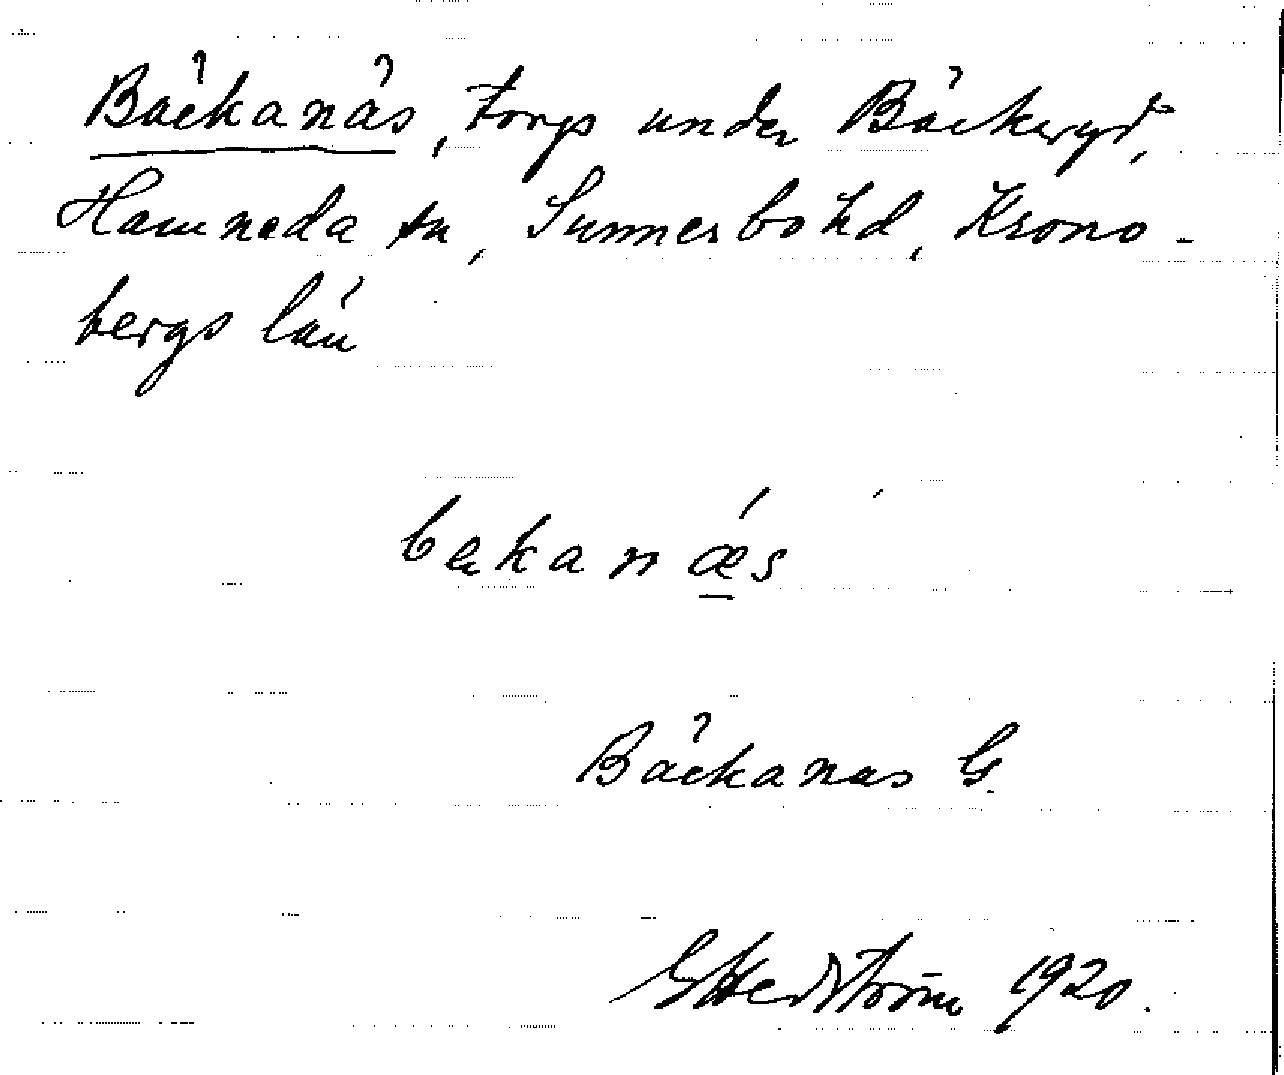 Bäckanäs, torps under Bäckeryd,
Hamneda sn, Sunnerbo hd, Krono-
bergs län
bekanǽs
Bäckanäs G.
G Hedström 1920.